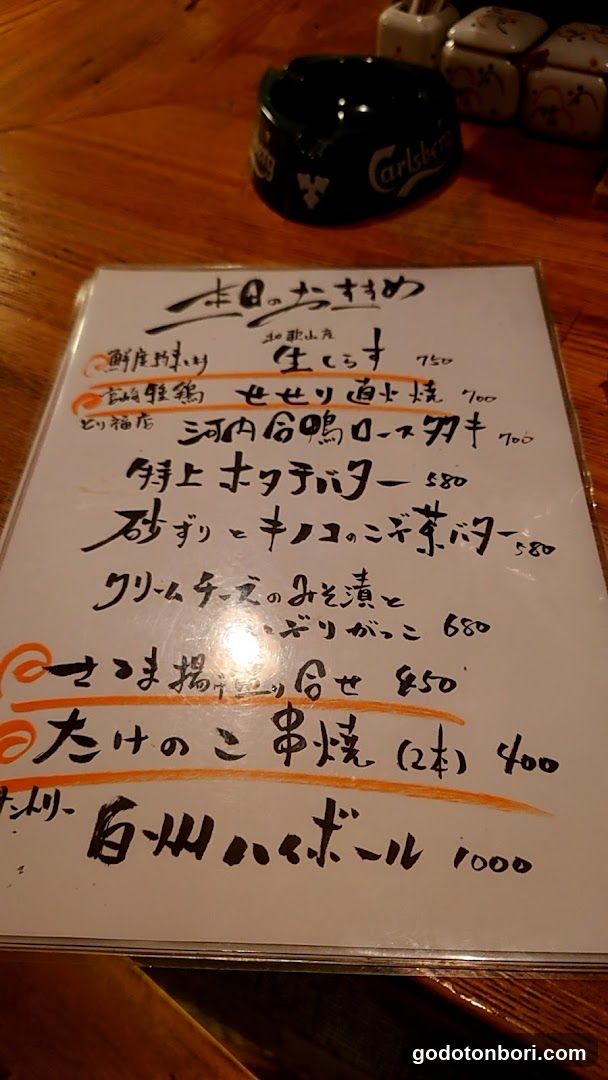 Carlsberg
本日のおすすめ
和歌山産
鮮度 生しらす 750
宮崎雅鶏 せせり直火焼 700
とり福店 河内合鴨ロースタタキ 700
特上ホタテバター 580
砂ずりとキノコのこぶ茶バター 580
クリームチーズのみそ漬と
いぶりがっこ 680
さつま揚げ盛り合せ 850
たけのこ串焼(2本) 400
サントリー
白州ハイボール 1000
godotonbori.com